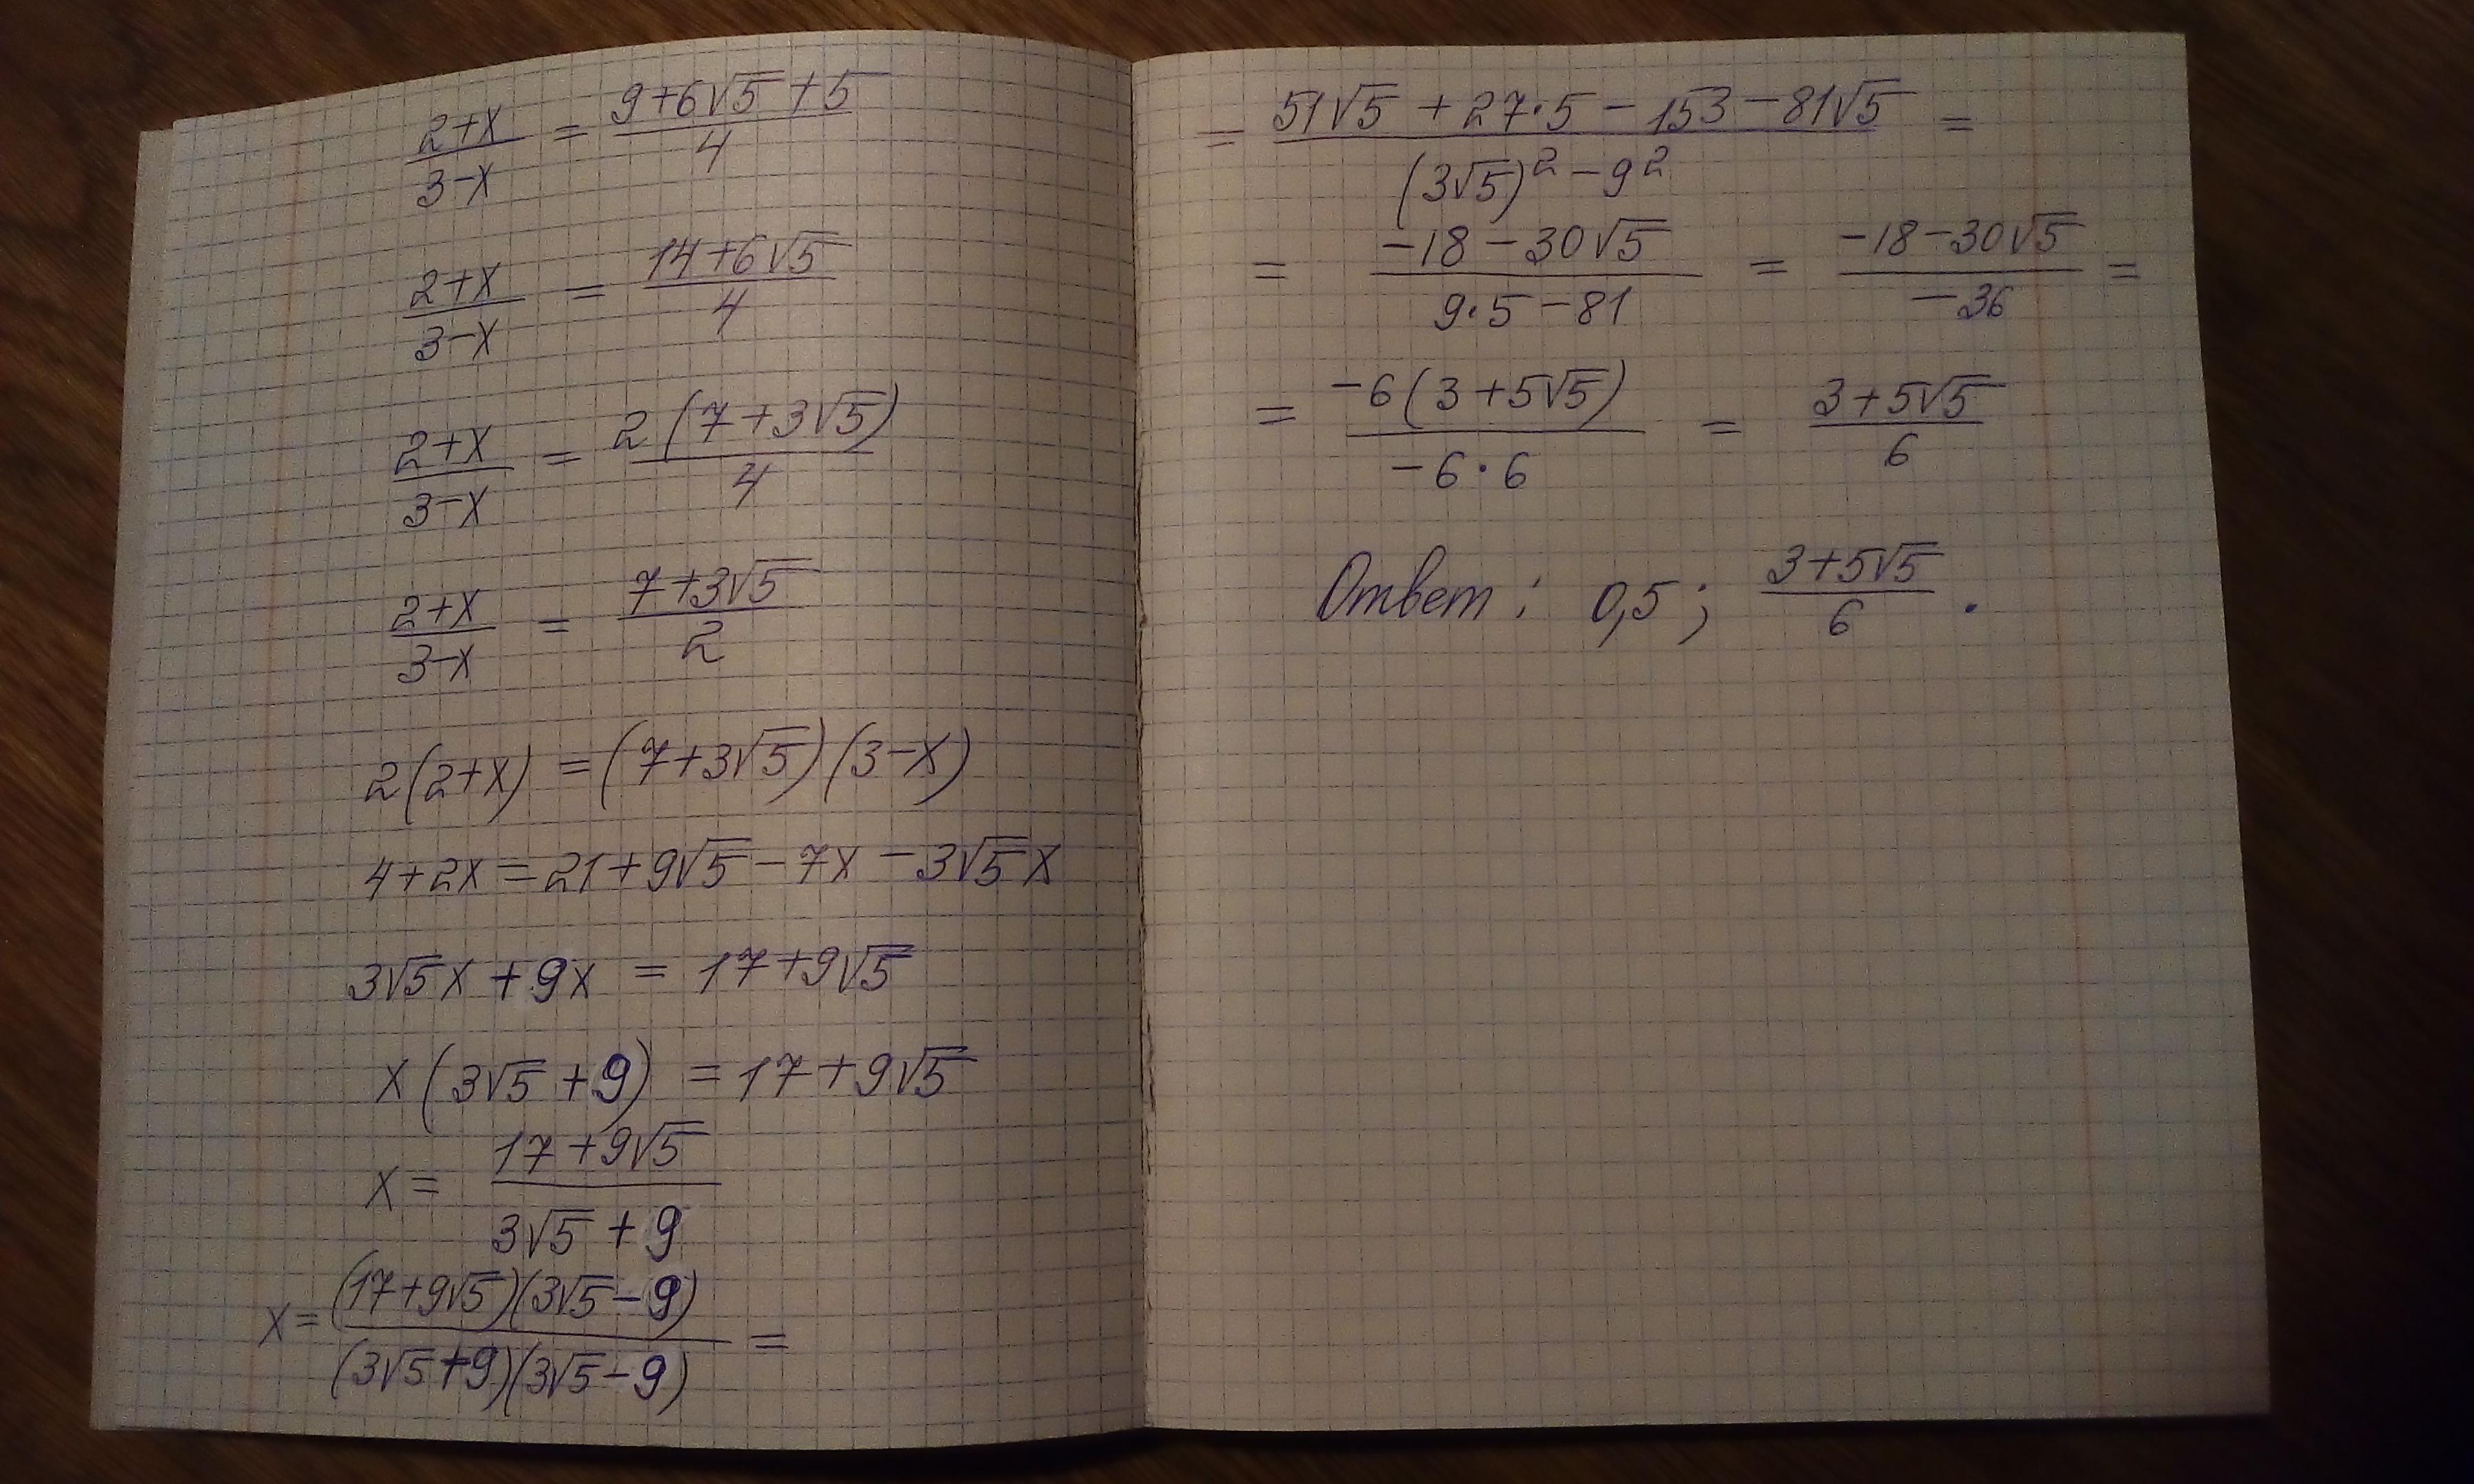 (2+x)/(3-x) = (9+6√5+5)/4
(2+x)/(3-x) = (14+6√5)/4
(2+x)/(3-x) = 2(7+3√5)/4
(2+x)/(3-x) = (7+3√5)/2
2(2+x) = (7+3√5)(3-x)
4+2x = 21+9√5-7x-3√5x
3√5x+9x = 17+9√5
x(3√5+9) = 17+9√5
x = (17+9√5)/(3√5+9)
x = (17+9√5)(3√5-9)/(3√5+9)(3√5-9) =
= (51√5+27·5-153-81√5)/((3√5)²-9²) =
= (-18-30√5)/(9·5-81) = (-18-30√5)/(-36) =
= -6(3+5√5)/(-6·6) = (3+5√5)/6
Ответ: 0,5; (3+5√5)/6.